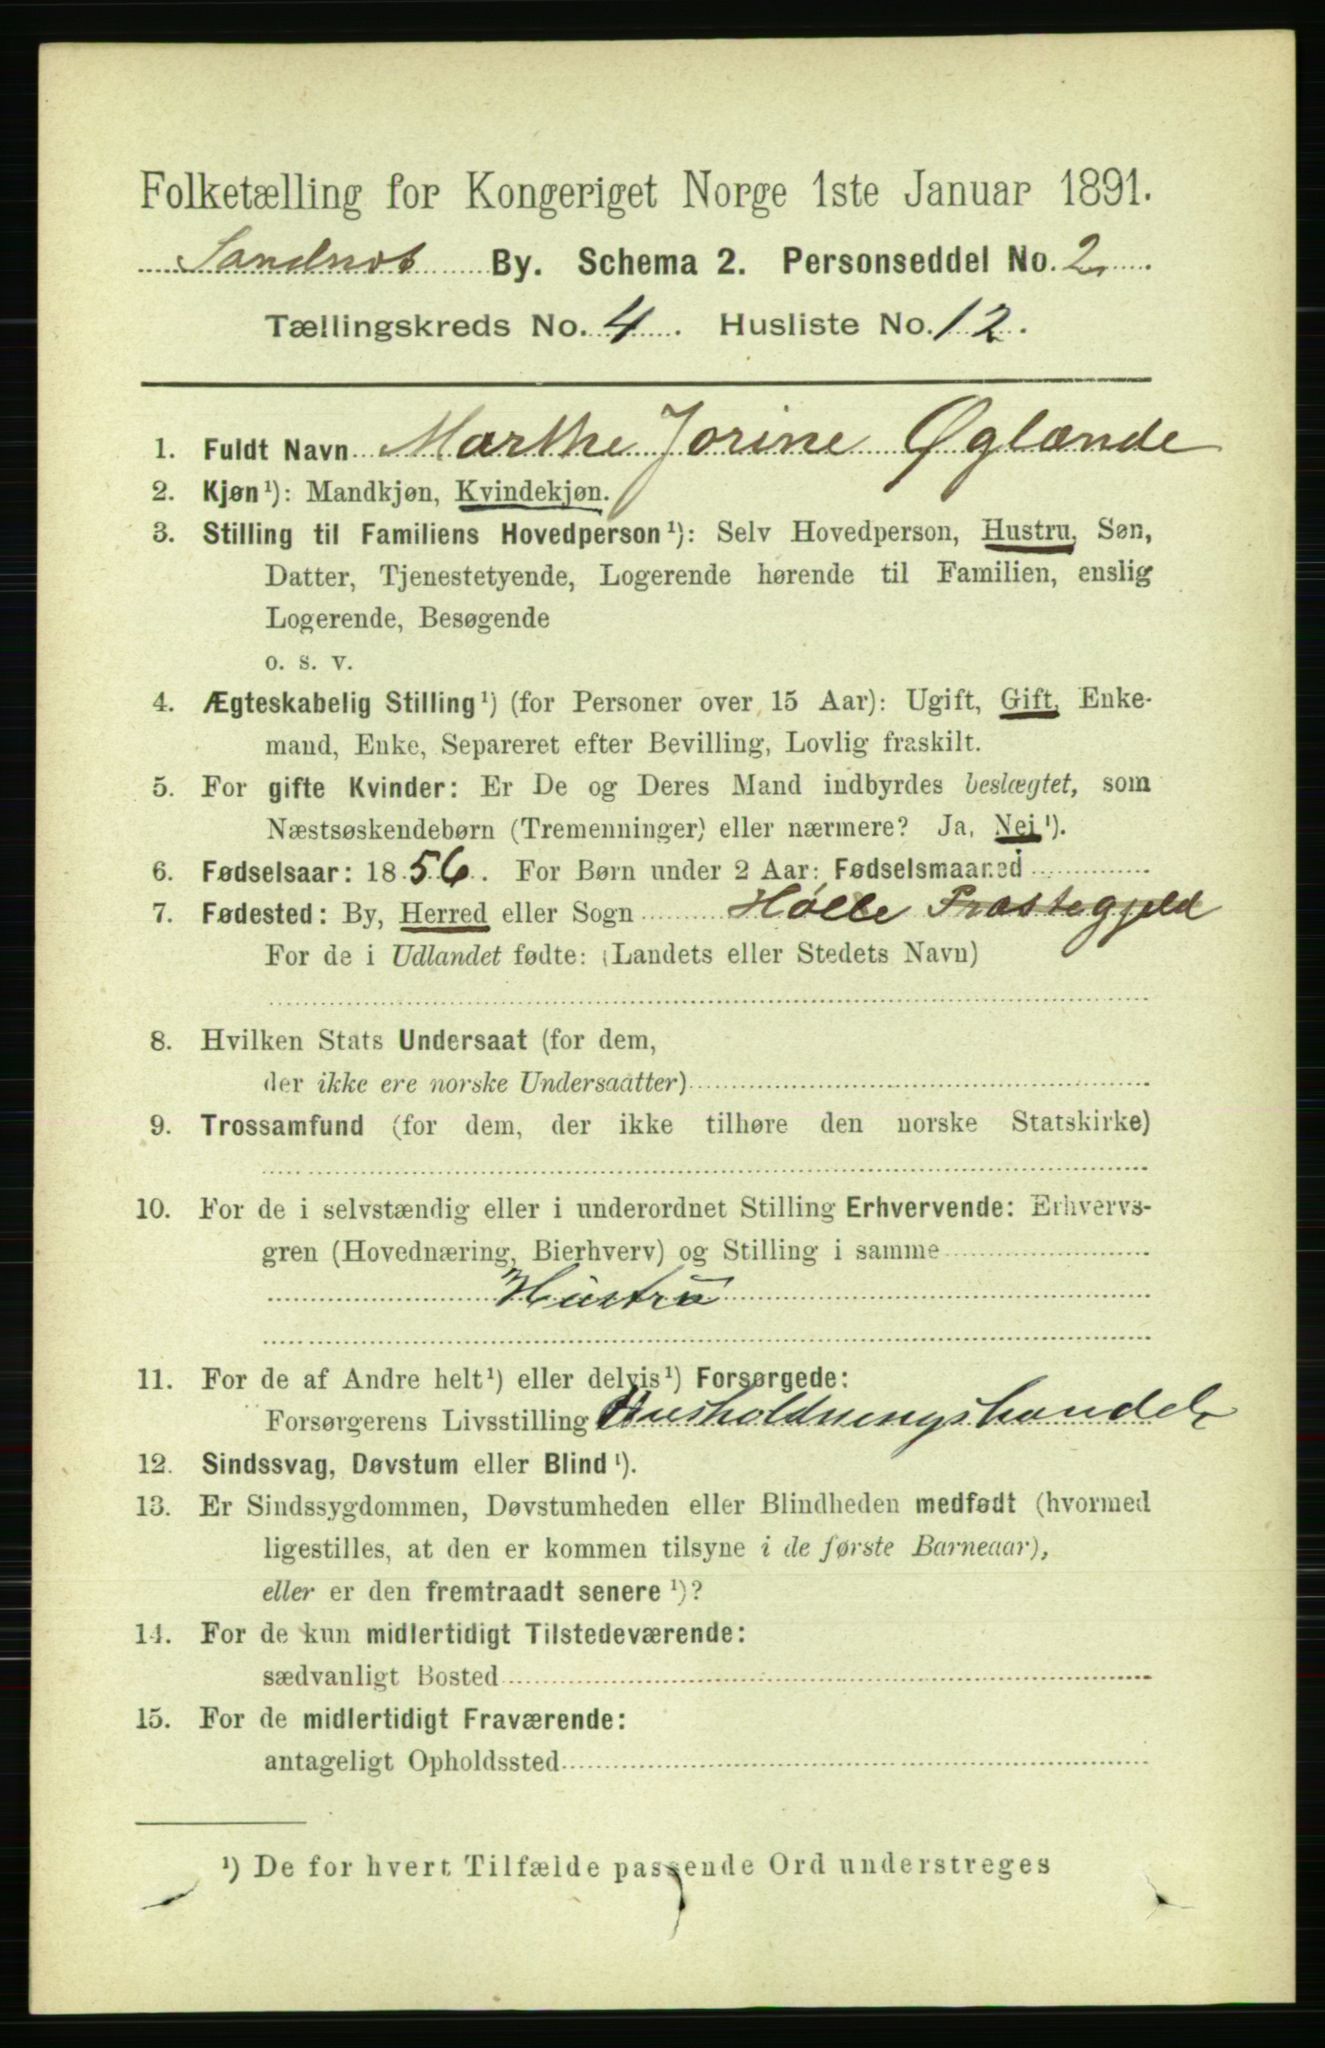 Folketælling for Kongeriget Norge 1ste Januar 1891.
Sandnes By. Schema 2. Personseddel No. 2
Tællingskreds No. 4. Husliste No. 12.
1. Fuldt Navn Marthe Jorine Øglænde
2. Kjøn¹): Mandkjøn, Kvindekjøn.
3. Stilling til Familiens Hovedperson¹): Selv Hovedperson, Hustru, Søn,
Datter, Tjenestetyende, Logerende hørende til Familien, enslig
Logerende, Besøgende
o. s. v.
4. Ægteskabelig Stilling¹) (for Personer over 15 Aar): Ugift, Gift, Enke-
mand, Enke, Separeret efter Bevilling, Lovlig fraskilt.
5. For gifte Kvinder: Er De og Deres Mand indbyrdes beslægtet, som
Næstsøskendebørn (Tremenninger) eller nærmere? Ja, Nei¹).
6. Fødselsaar: 1856. For Børn under 2 Aar: Fødselsmaaned
7. Fødested: By, Herred eller Sogn Hølle Præstegjeld
For de i Udlandet fødte: (Landets eller Stedets Navn)
8. Hvilken Stats Undersaat (for dem,
der ikke ere norske Undersaatter)
9. Trossamfund (for dem, der ikke tilhøre den norske Statskirke)
10. For de i selvstændig eller i underordnet Stilling Erhvervende: Erhvervs-
gren (Hovednæring, Bierhverv) og Stilling i samme
Hustru
11. For de af Andre helt¹) eller delvis¹) Forsørgede:
Forsørgerens Livsstilling Husholdningshandel
12. Sindssvag, Døvstum eller Blind¹).
13. Er Sindssygdommen, Døvstumheden eller Blindheden medfødt (hvormed
ligestilles, at den er kommen tilsyne i de første Barneaar),
eller er den fremtraadt senere¹)?
14. For de kun midlertidigt Tilstedeværende:
sædvanligt Bosted
15. For de midlertidigt Fraværende:
antageligt Opholdssted
¹) De for hvert Tilfælde passende Ord understreges